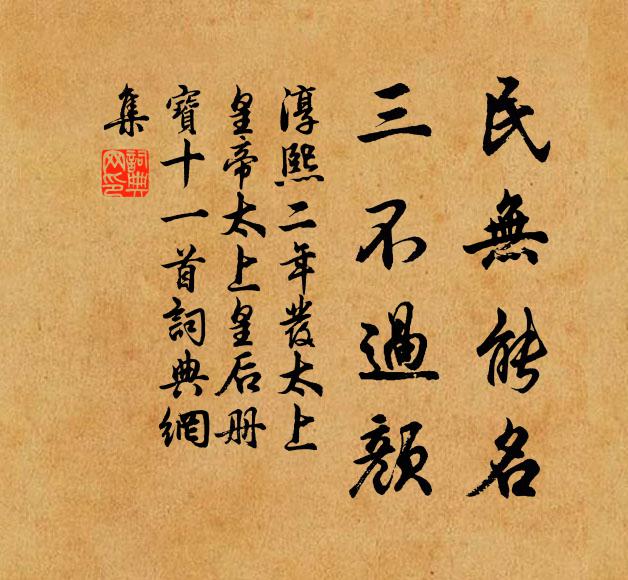 民無能名
三不過顏
淳熙二年發太上
皇帝太上皇后册
寶十一首詞典網
集
詞典網印